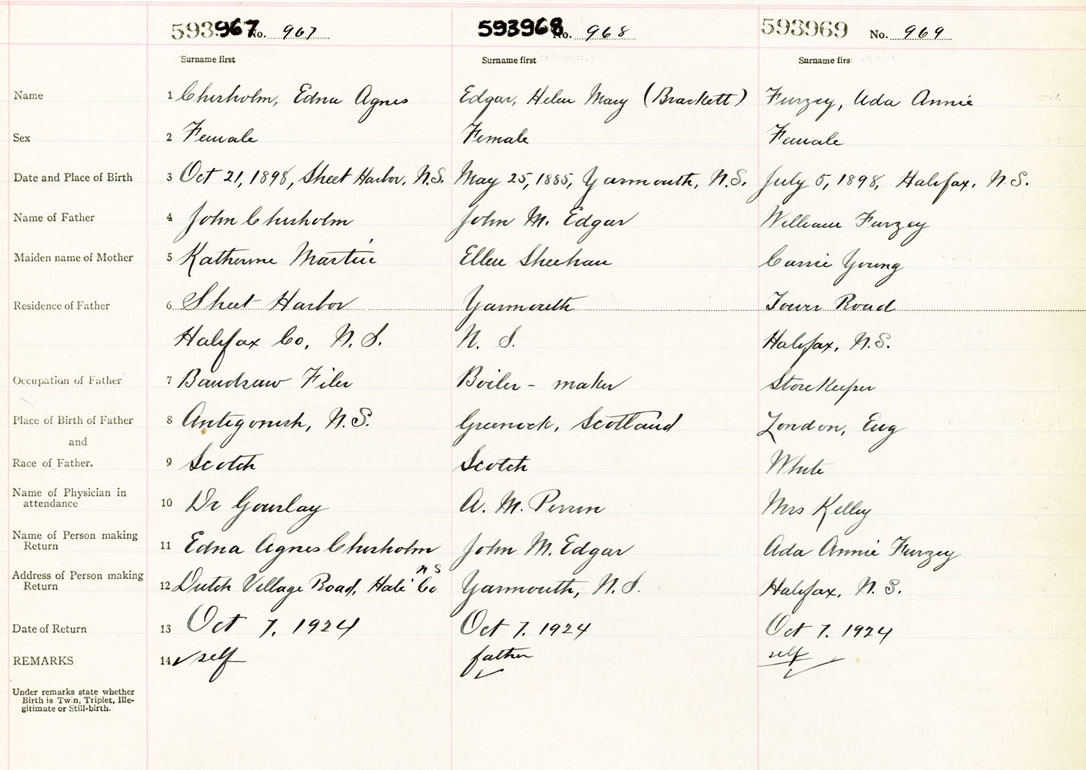 593967 No. 967 593968 No. 968 593969 No. 969
Surname first Surname first Surname firs
Name 1 Chisholm, Edna Agnes Edgar, Helen Mary (Brackett) Furzey, Ada Annie
Sex 2 Female Female Female
Date and Place of Birth 3 Oct 21, 1898, Sheet Harbor, N.S. May 25, 1885, Yarmouth, N.S. July 5, 1898, Halifax, N.S.
Name of Father 4 John Chisholm John M. Edgar William Furzey
Maiden name of Mother 5 Katherine Martin Ellen Sheehan Carrie Young
Residence of Father 6 Sheet Harbor Yarmouth Tower Road
Halifax Co, N.S. N.S. Halifax, N.S.
Occupation of Father 7 Bandsaw Filer Boiler-maker Storekeeper
Place of Birth of Father 8 Antigonish, N.S. Greenock, Scotland London, Eng
and
Race of Father. 9 Scotch Scotch White
Name of Physician in
attendance 10 Dr Gourlay A. M. Perrin Mrs Kelley
Name of Person making
Return 11 Edna Agnes Chisholm John M. Edgar Ada Annie Furzey
Address of Person making
Return 12 Dutch Village Road, Hali Co NS Yarmouth, N.S. Halifax, N.S.
Date of Return 13 Oct 7, 1924 Oct 7, 1924 Oct 7, 1924
REMARKS 14 self father self
Under remarks state whether
Birth is Twin, Triplet, Ille-
gitimate or Still-birth.